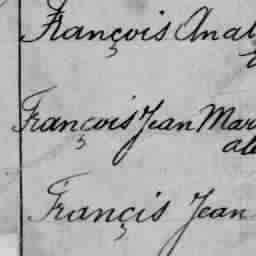 François Anat
François Jean Mar
Françis Jean